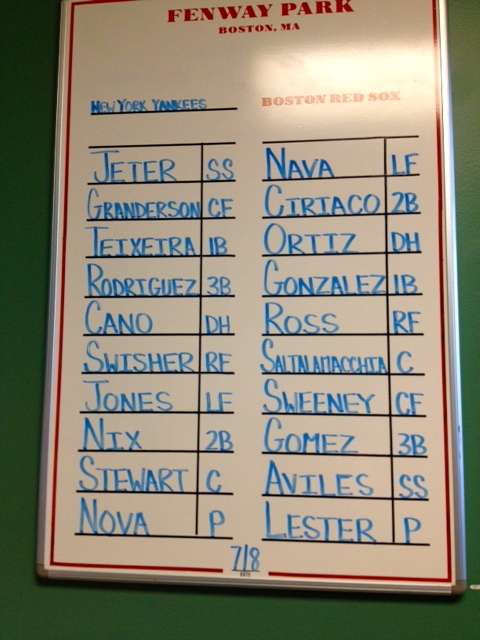 FENWAY PARK
BOSTON, MA
NEW YORK YANKEES BOSTON RED SOX
JETER SS NAVA LF
GRANDERSON CF CIRIACO 2B
TEIXEIRA 1B ORTIZ DH
RODRIGUEZ 3B GONZALEZ 1B
CANO DH ROSS RF
SWISHER RF SALTALAMACCHIA C
JONES LF SWEENEY CF
NIX 2B GOMEZ 3B
STEWART C AVILES SS
NOVA P LESTER P
7/8